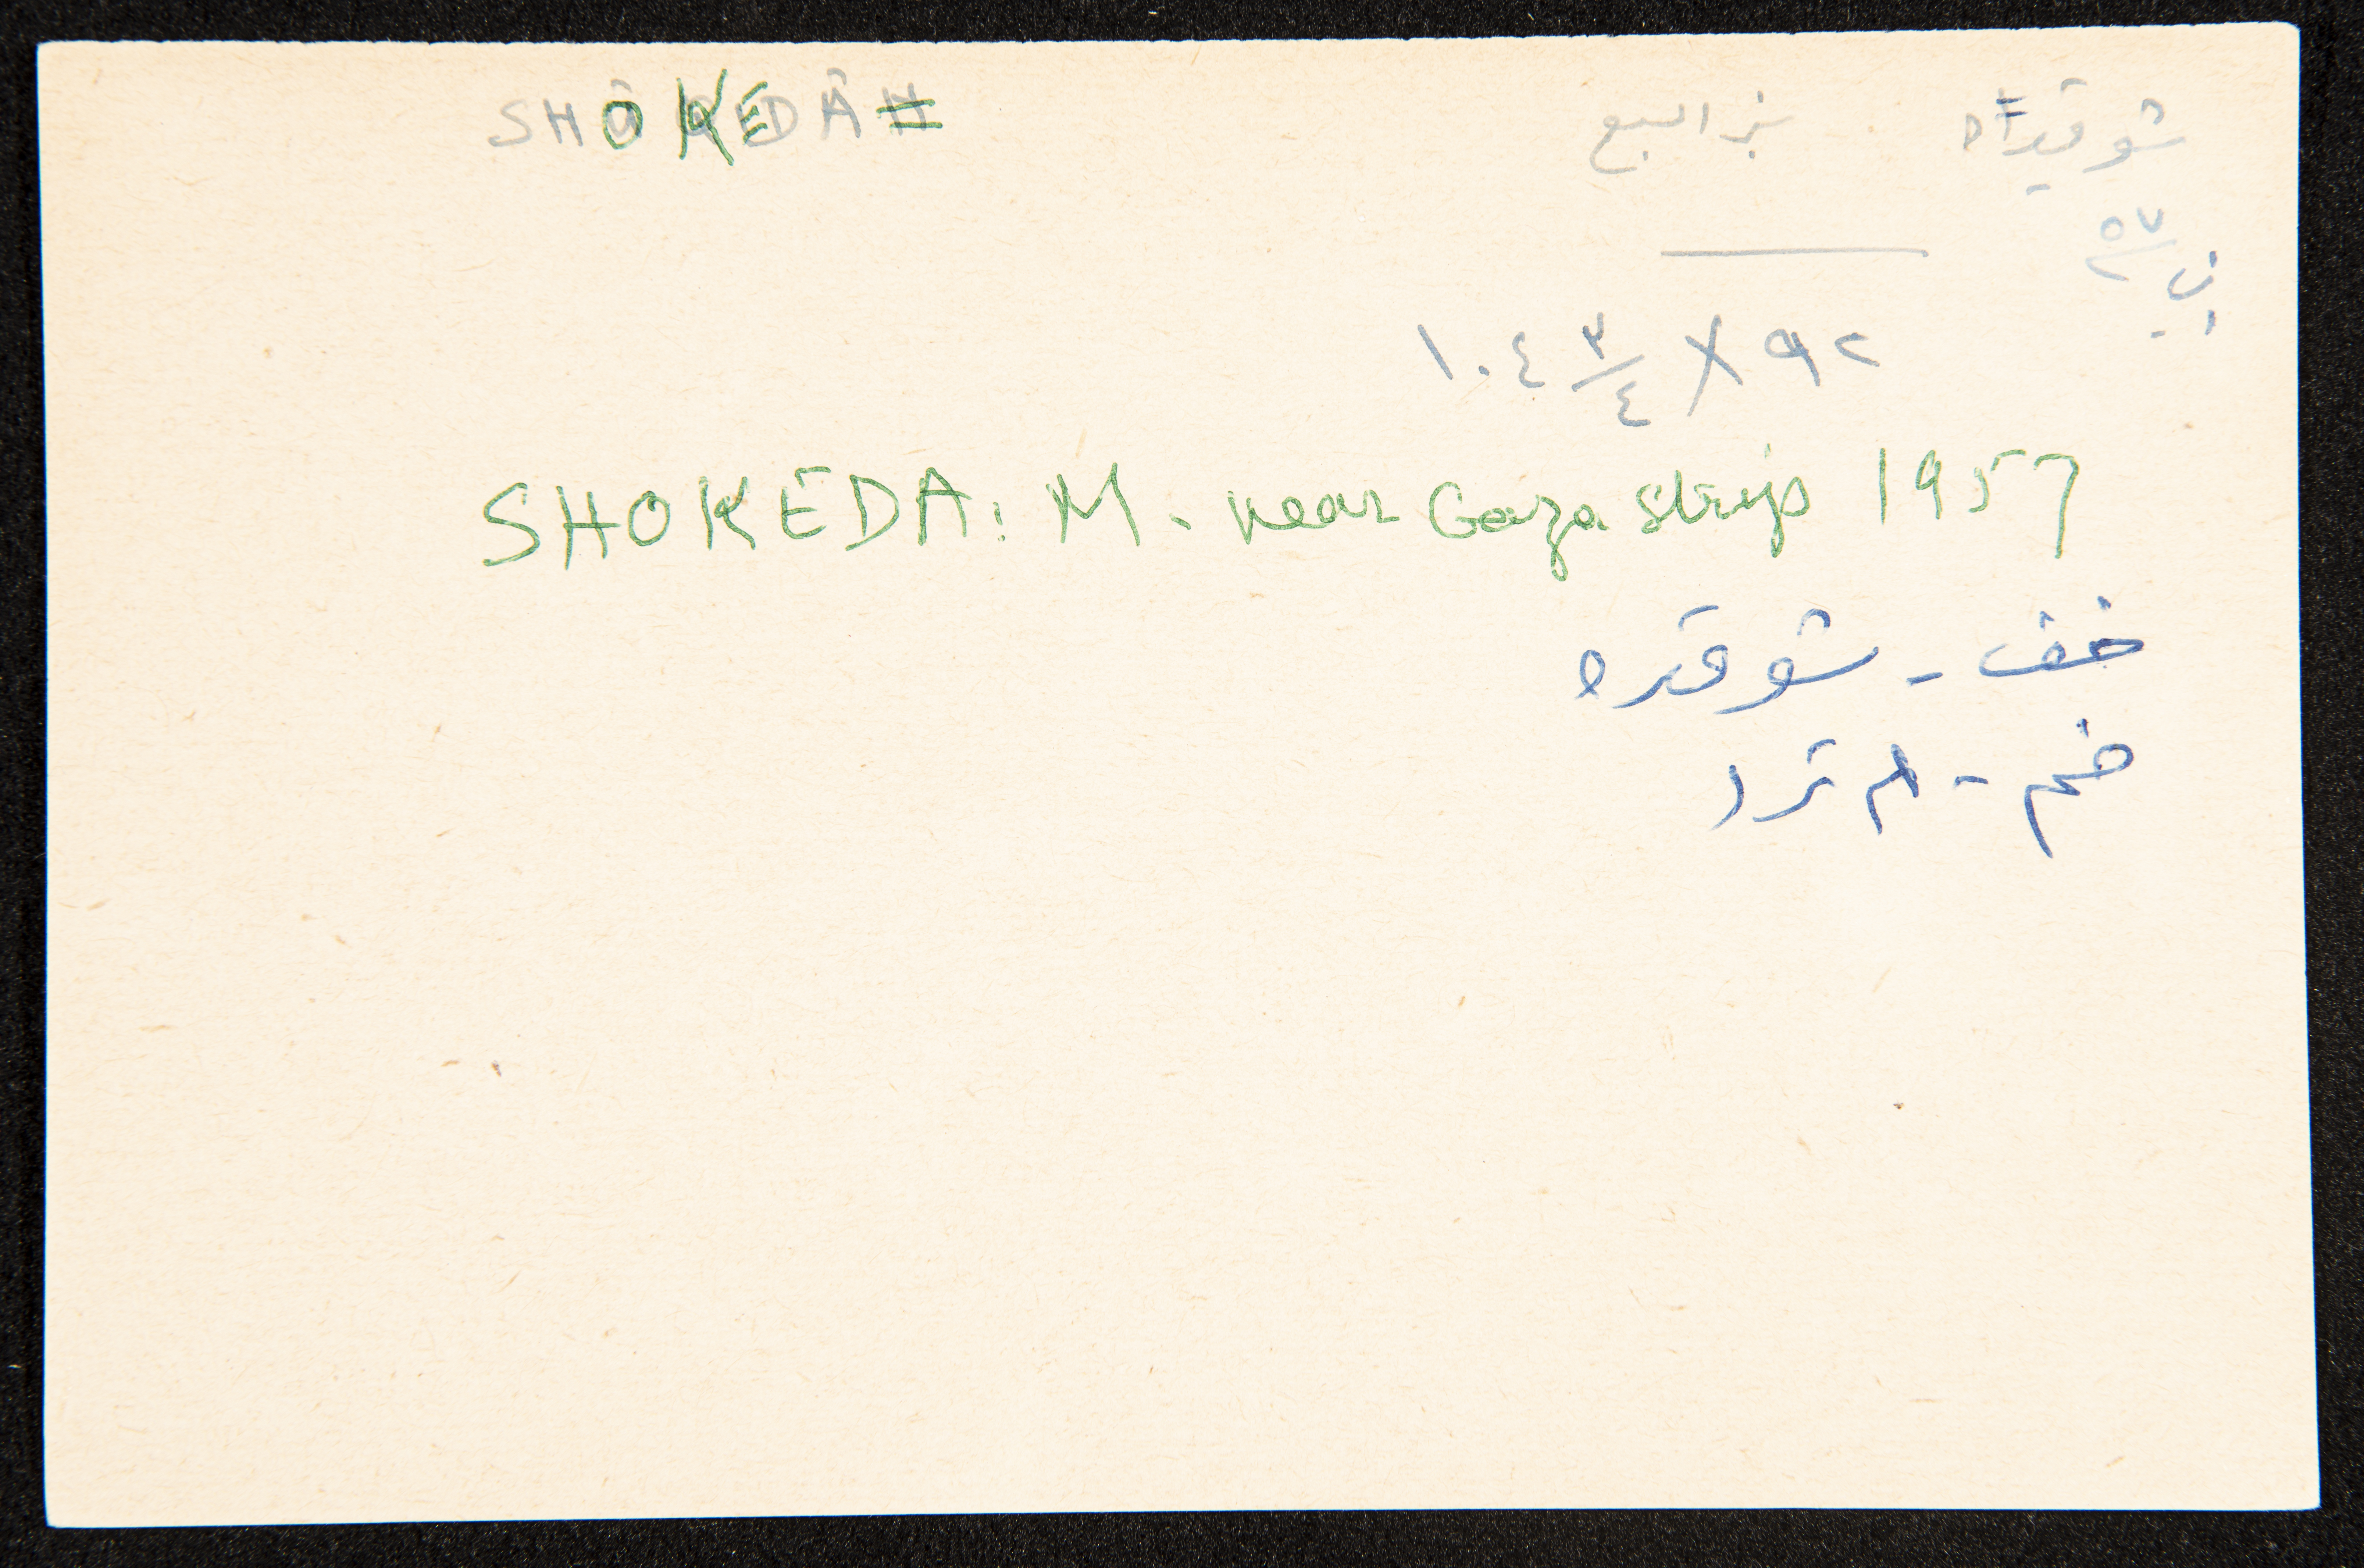 SHOKEDA
شوقيداه بئر السبع
٥٧/٢
١٠٤ ٣/٤ X ٩٢
SHOKEDA: M. near Gaza strip 1957
خف - شوقده
ضم -